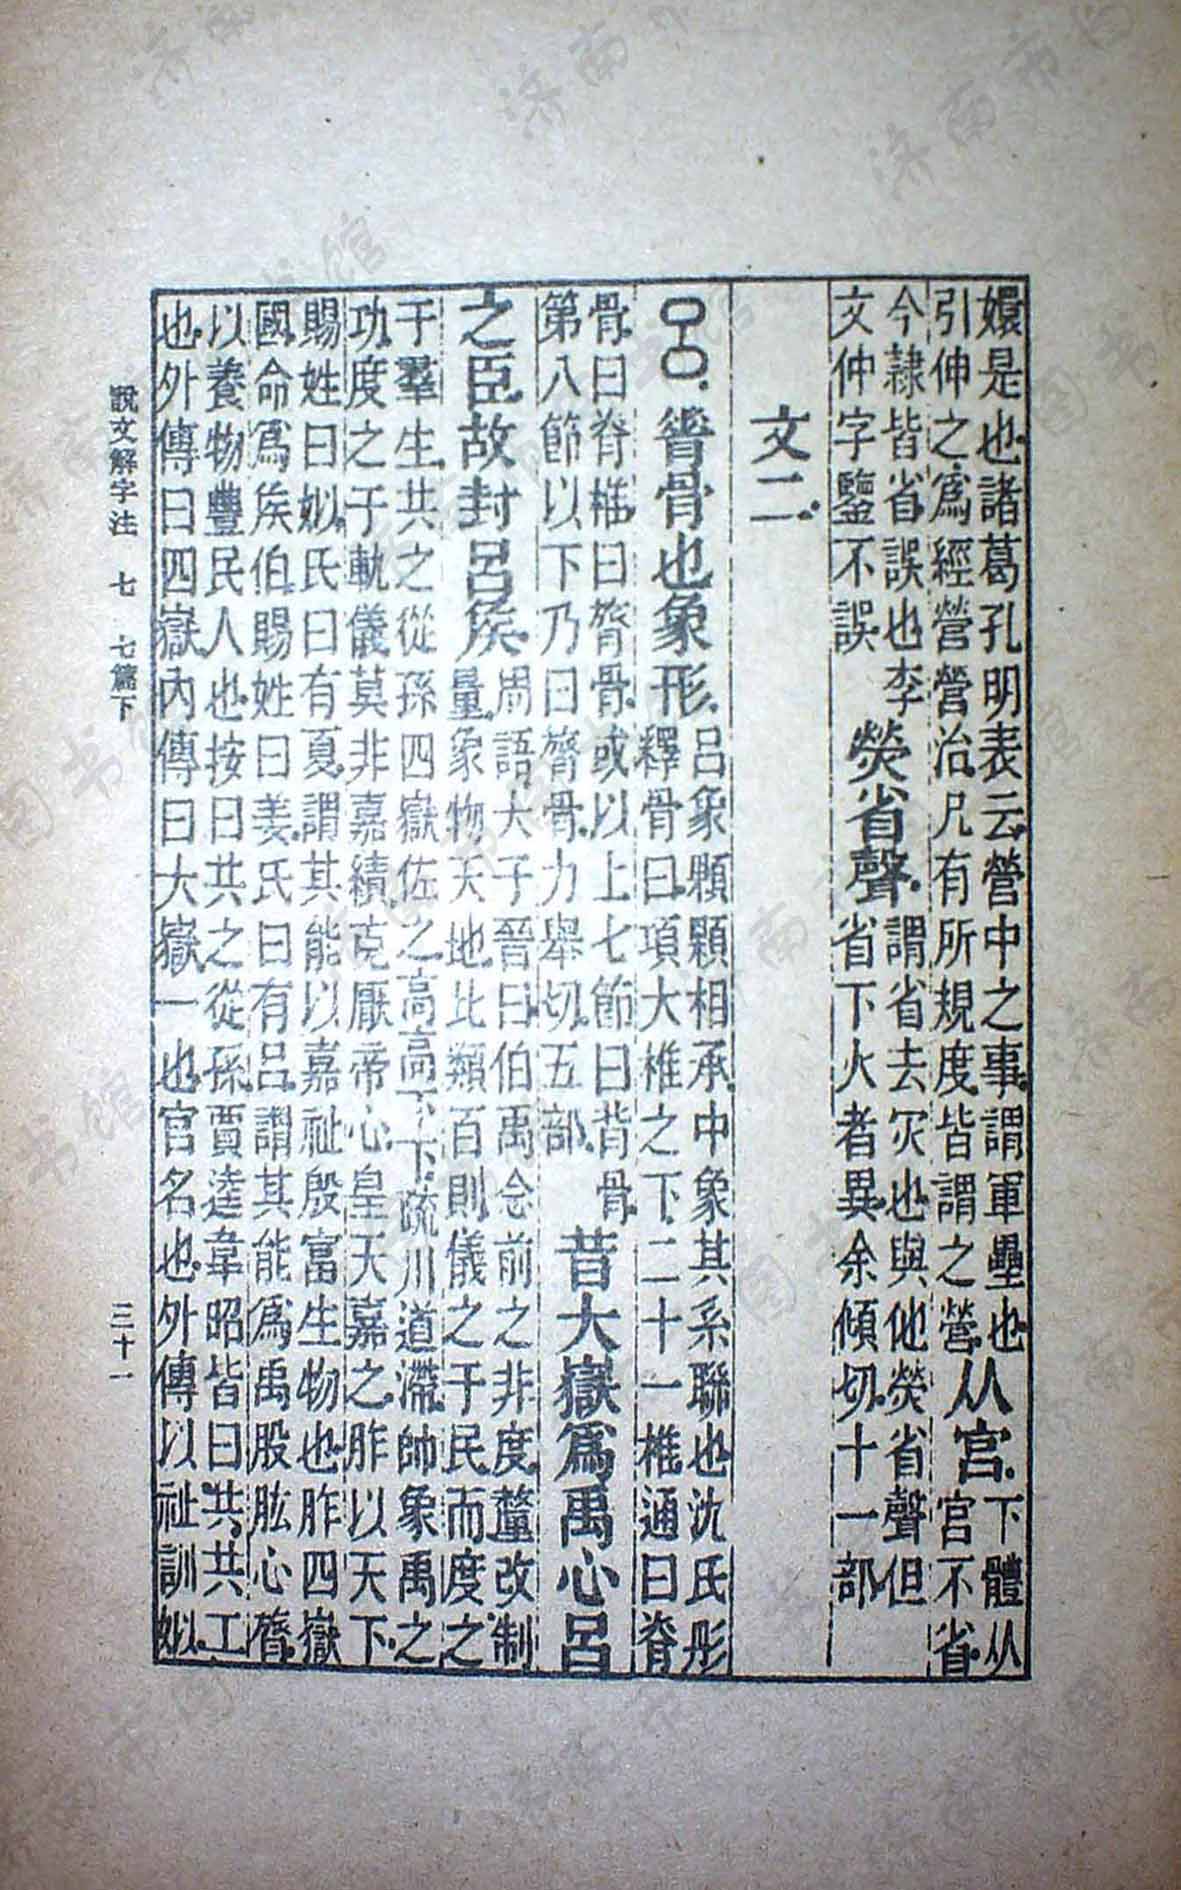 嬛是也諸葛孔明表云營中之事謂軍壘也
引伸之爲經營營治凡有所規度皆謂之營
从宮
下體从
宮不省
今隸皆省誤也李
文仲字鑒不誤
熒省聲
謂省去也與他熒省聲但
省下火者異余傾切十一部
文二
呂脊骨也象形
呂象顆顆相承中象其系聯也沈氏彤
釋骨曰項大椎之下二十一椎通曰脊
骨曰脊椎曰膂骨或以上七節曰背骨
第八節以下乃曰膂骨力舉切五部
昔大嶽爲禹心呂
之臣故封呂矦
周語大子晉曰伯禹念前之非度釐改制
量象物天地比類百則儀之于民而度之
于羣生共之從孫四嶽佐之高高下下疏川道滯帥象禹之
功度之于軌儀莫非嘉績克厭帝心皇天嘉之胙以天下
賜姓曰姒氏曰有夏謂其能以嘉祉殷富生物也胙四嶽
國命爲矦伯賜姓曰姜氏曰有呂謂其能爲禹股肱心膂
以養物豐民人也按曰共之從孫賈逵韋昭皆曰共共工
也外傳曰四嶽內傳曰大嶽一也官名也外傳以祉訓姒
說文解字注 七 七篇下 三十一